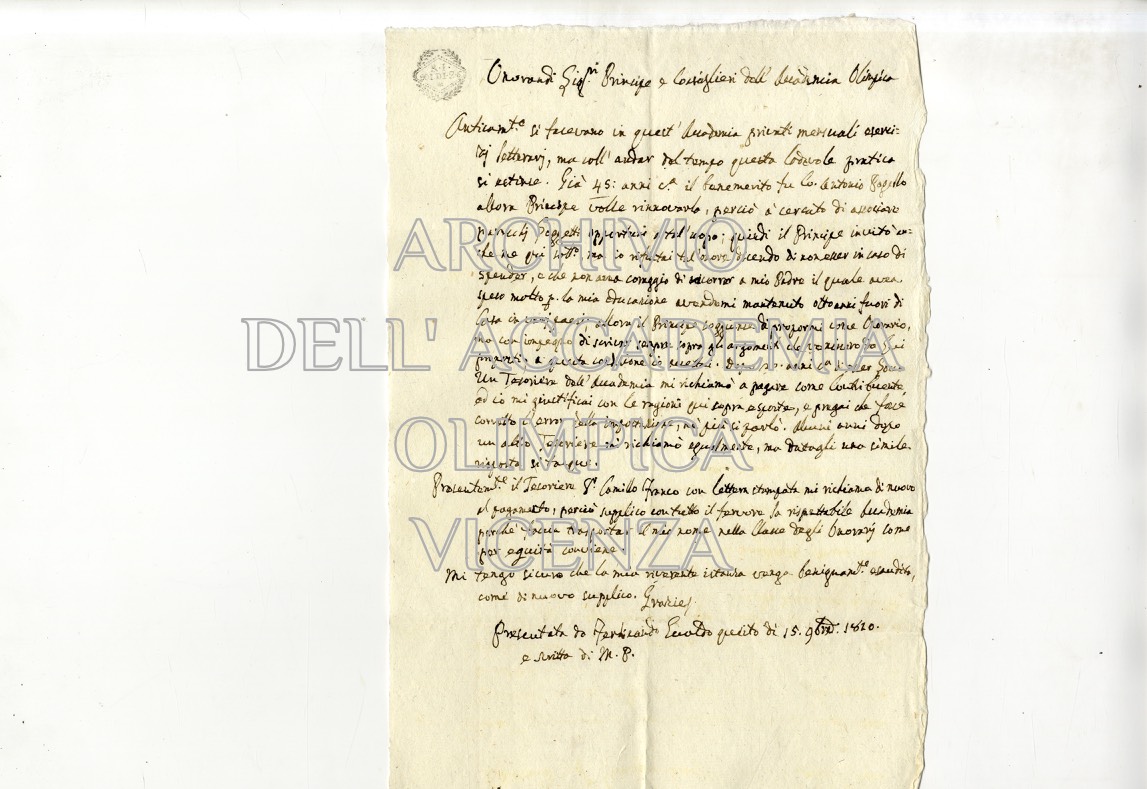 Onorandi Sig.ri Principe e Consiglieri dell' Accademia Olimpica
Anticamt.e si facevano in quest' Accademia privati mensuali eserci-
zj letterarj, ma coll' andar del tempo questa lodevole pratica
si estinse. Già 45: anni c.a il benemerito fu Co. Antonio
allora Principe volle rinnovarlo, perciò à cercato di associare
parecchj Soggetti opportuni a tal' uopo; quindi il Principe invitò an-
che me qui sott.o, ma io rifiutai tal' onore dicendo di non esser in caso di
spender, e che non avea coraggio di ricorrer a mio Padre il quale avea
speso molto p. la mia educazione avendomi mantenuto otto anni fuori di
Casa in allora il Principe soggiunse di propormi come Onorario,
ma con impegno di scriver sempre sopra gli argomenti che venissero a
proposti. a questa condizione io accettai. Dopo anni c.a
Un Tesoriere dell' Accademia mi richiamò a pagare come Contribuente,
ed io mi giustificai con le ragioni qui sopra esposte, e pregai che
corretto l' error della impostazione, nè più si parlò. Alcuni anni dopo
un altro Tesoriere mi richiamò egualmente, ma datagli una simile
risposta si tacque.
Presentemt.e il Tesoriere S.r Camillo Franco con lettera stampata mi richiama di nuovo
al pagamento, perciò supplico con tutto il fervore la rispettabile Accademia
perchè faccia trasportar il mio nome nella Classe degli Onorarj come
per equità conviene.
Mi tengo sicuro che la mia riverente istanza venga benignamt.e esaudita,
come di nuovo supplico. Grazie
Presentata da Ferdinando questo dì 15. 9bre. 1810.
e scritta di M. P.
ARCHIVIO
DELL' ACCADEMIA
OLIMPICA
VICENZA